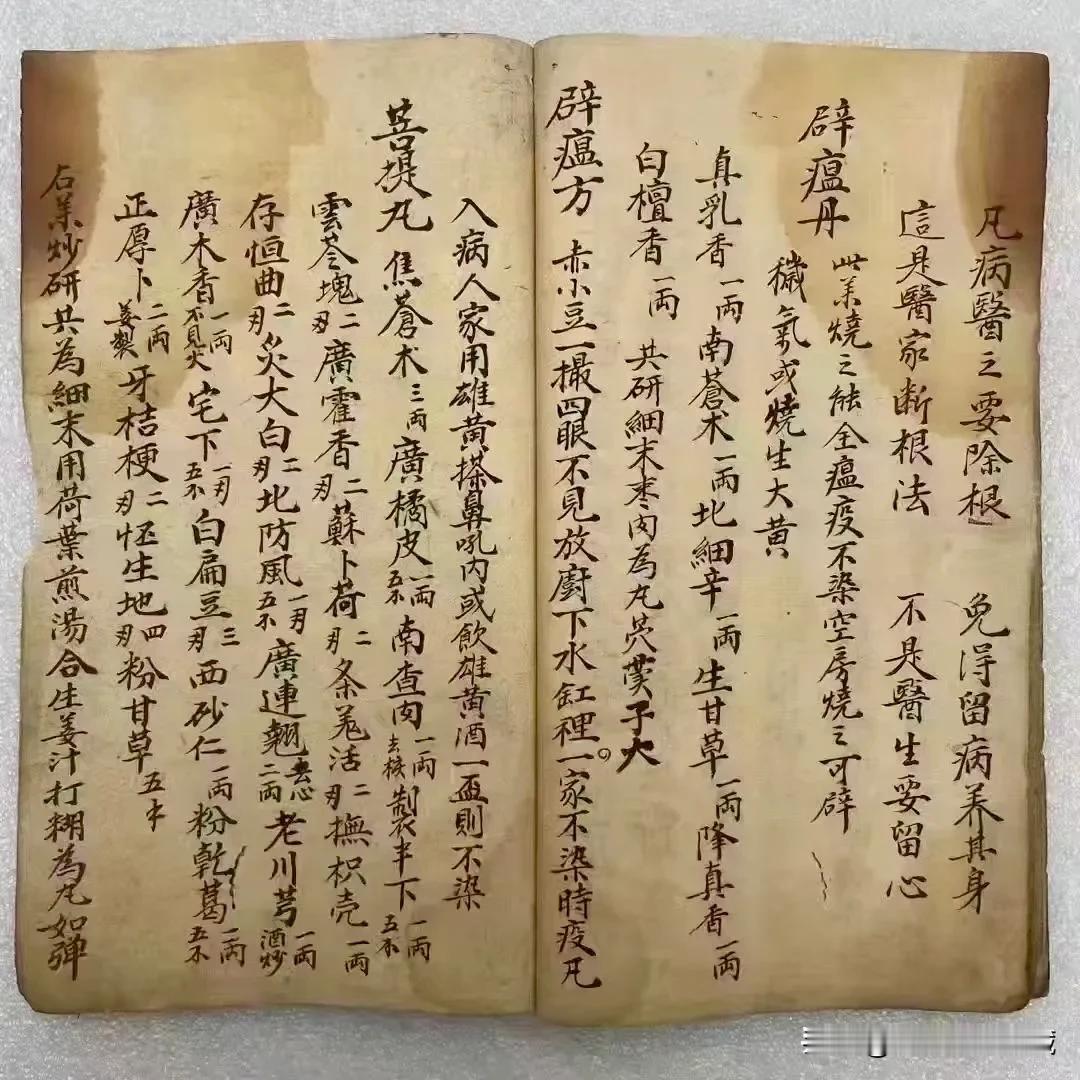 凡病醫之要除根 免得留病养其身
這是醫家断根法 不是醫生要留心
辟瘟丹 此葯燒之能全瘟疫不染空房燒之可辟
穢氣或燒生大黄
真乳香一両南蒼术一両北細辛一両生甘草一両降真香一両
白檀香一両 共研細末枣肉為丸芡實子大
辟瘟方 赤小豆一撮四眼不見放廚下水缸裡一家不染時疫凡
入病人家用雄黄搽鼻吼内或飲雄黄酒一盃則不染
菩提丸 焦蒼术三両廣橘皮一両五不南查肉一両去核製半下一両五不
雲苓塊二刄廣霍香二刄蘇卜荷二刄条羗活二刄撫枳壳一両
存恒曲二刄災大白二刄北防風一刄五不廣連翹去心二両老川芎一両酒炒
廣木香一両不見火宅下一刄五不白扁豆三刄西砂仁一両粉乾葛一両五不
正厚卜二両姜製牙桔梗二刄怌生地四刄粉甘草五本
右葯炒研共為細末用荷葉煎湯合生姜汁打糊為丸如弹